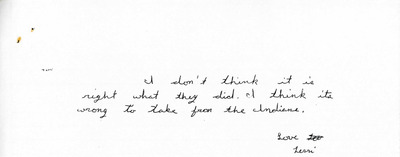 I don't think it is
right what they did. I think its
wrong to take from the Indians.
Love
Terri